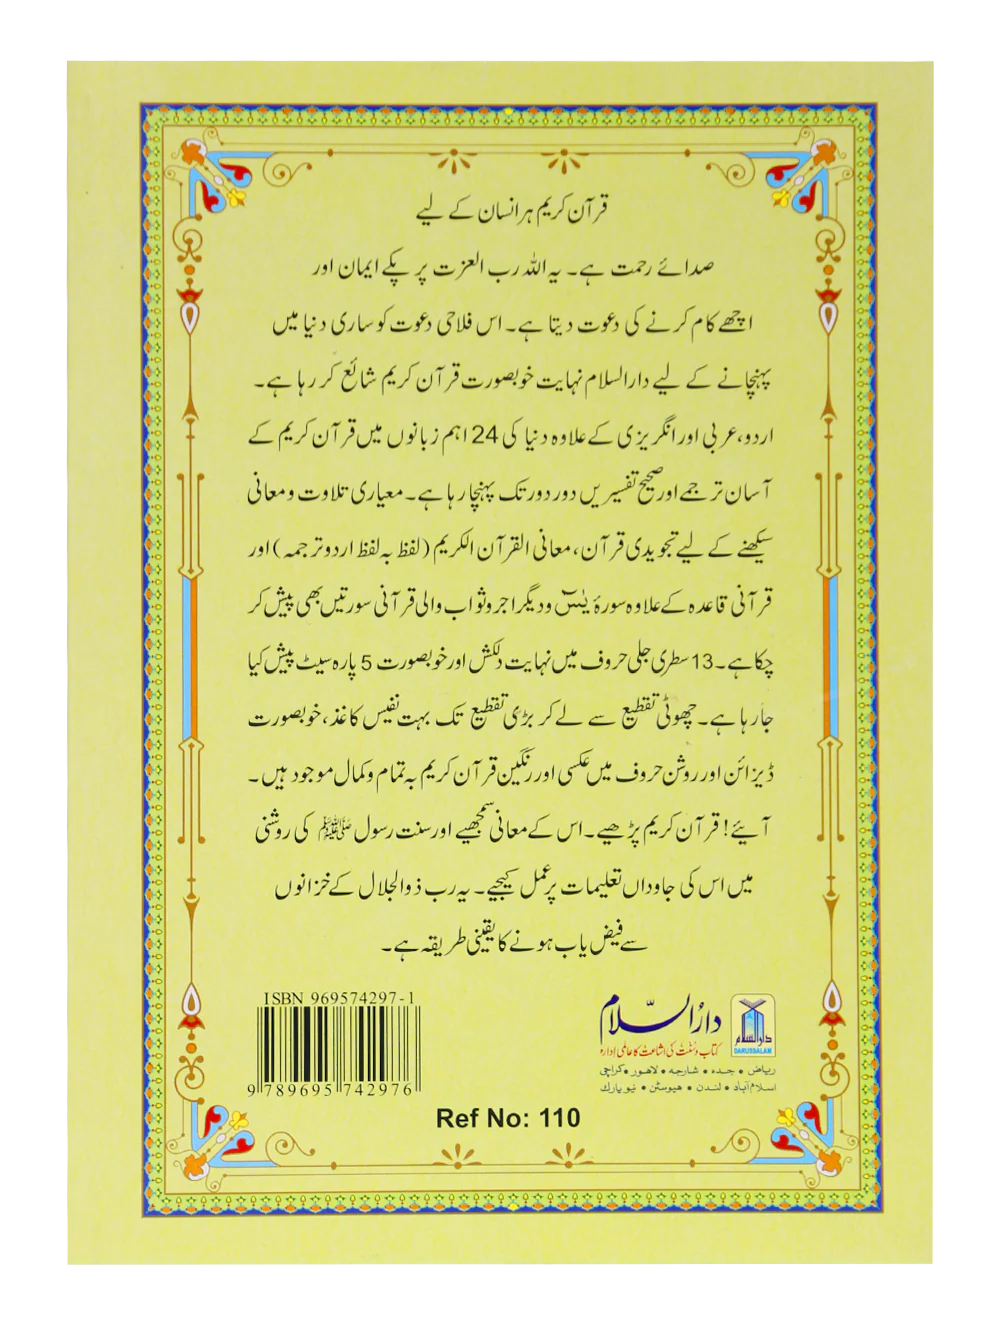 قرآن کریم ہر انسان کے لیے
صدائے رحمت ہے۔ یہ اللہ رب العزت پر پکے ایمان اور
اچھے کام کرنے کی دعوت دیتا ہے۔ اس فلاحی دعوت کو ساری دنیا میں
پہنچانے کے لیے دارالسلام نہایت خوبصورت قرآن کریم شائع کر رہا ہے۔
اردو، عربی اور انگریزی کے علاوہ دنیا کی 24 اہم زبانوں میں قرآن کریم کے
آسان ترجمے اور صحیح تفسیریں دور دور تک پہنچا رہا ہے۔ معیاری تلاوت و معانی
سیکھنے کے لیے تجویدی قرآن، معانی القرآن الکریم (لفظ بہ لفظ اردو ترجمہ) اور
قرآنی قاعدہ کے علاوہ سورۂ یٰسٓ و دیگر اجر و ثواب والی قرآنی سورتیں بھی پیش کر
چکا ہے۔ 13 سطری جلی حروف میں نہایت دلکش اور خوبصورت 5 پارہ سیٹ پیش کیا
جا رہا ہے۔ چھوٹی تقطیع سے لے کر بڑی تقطیع تک بہت نفیس کاغذ، خوبصورت
ڈیزائن اور روشن حروف میں عکسی اور رنگین قرآن کریم بہ تمام و کمال موجود ہیں۔
آیئے! قرآن کریم پڑھیے۔ اس کے معانی سمجھیے اور سنت رسول ﷺ کی روشنی
میں اس کی جاوداں تعلیمات پر عمل کیجیے۔ یہ رب ذوالجلال کے خزانوں
سے فیض یاب ہونے کا یقینی طریقہ ہے۔
دارالسلام
دارالسلام
DARUSSALAM
کتاب و سنت کی اشاعت کا عالمی ادارہ
ریاض • جدہ • شارجہ • لاہور • کراچی
اسلام آباد • لندن • ہیوسٹن • نیو یارک
ISBN 969574297-1
9 789695 742976
Ref No: 110